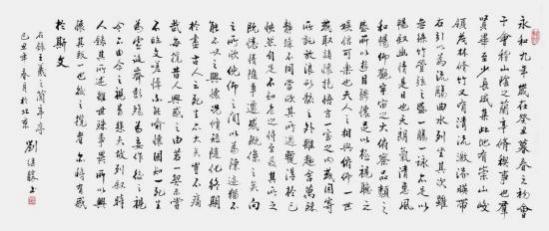 永和九年歲在癸丑暮春之初會
于會稽山陰之蘭亭脩禊事也群
賢畢至少長咸集此地有崇山峻
領茂林修竹又有清流激湍暎帶
左右引以為流觴曲水列坐其次雖
無絲竹管弦之盛一觴一詠亦足以
暢敘幽情是日也天朗氣清惠風
和暢仰觀宇宙之大俯察品類之
盛所以遊目騁懷足以極視聽之
娛信可樂也夫人之相與俯仰一世
或取諸懷抱悟言一室之內或因寄
所託放浪形骸之外雖趣舍萬殊
靜躁不同當其欣於所遇蹔得於己
快然自足不知老之將至及其所之
既倦情隨事遷感慨係之矣向
之所欣俛仰之間以為陳迹猶不
能不以之興懷況脩短隨化終期
於盡古人云死生亦大矣豈不痛
哉每攬昔人興感之由若合一契未嘗
不臨文嗟悼不能喻之於懷固知一死生
為虛誕齊彭殤為妄作後之視
今亦由今之視昔悲夫故列敘時
人錄其所述雖世殊事異所以興
懷其致一也後之攬者亦將有感
於斯文
右錄王羲之蘭亭序
己丑年春月於北京 劉